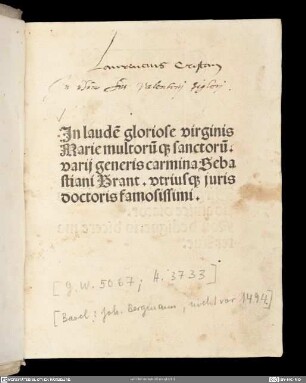 Laurencius
In laudē gloriose virginis
Marie multorū qꝫ sanctorū.
varij generis carmina Seba
stiani Brant. vtriusqꝫ juris
doctoris famosissimi.
[G.W. 5067; H. 3733]
[Basel: Joh. Bergmann, nicht vor 1494]